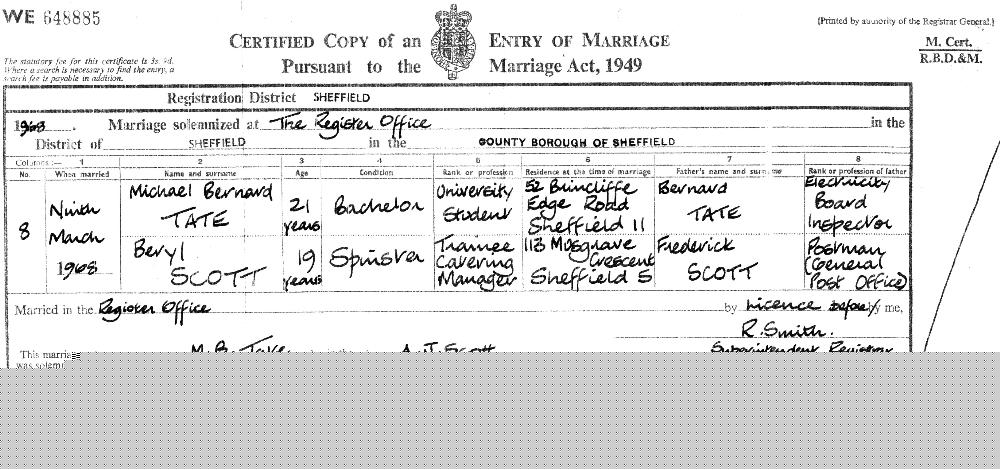 WE 648885
(Printed by authority of the Registrar General.)
CERTIFIED COPY of an ENTRY OF MARRIAGE
Pursuant to the Marriage Act, 1949
M. Cert.
R.B.D.&M.
The statutory fee for this certificate is 3s. 9d.
Where a search is necessary to find the entry, a
search fee is payable in addition.
Registration District SHEFFIELD
1968. Marriage solemnized at The Register Office in the
District of SHEFFIELD in the COUNTY BOROUGH OF SHEFFIELD
Columns:— 1 2 3 4 5 6 7 8
No. When married Name and surname Age Condition Rank or profession Residence at the time of marriage Father's name and surname Rank or profession of father
8
Ninth
March
1968
Michael Bernard
TATE
21
years
Bachelor
University
Student
52 Brincliffe
Edge Road
Sheffield 11
Bernard
TATE
Electricity
Board
Inspector
Beryl
SCOTT
19
years
Spinster
Trainee
Catering
Manager
113 Musgrave
Crescent
Sheffield 5
Frederick
SCOTT
Postman
(General
Post Office)
Married in the Register Office by Licence before/by me,
R. Smith.
This marriage M. B. Tate A. J. Scott Superintendent Registrar
was solemn